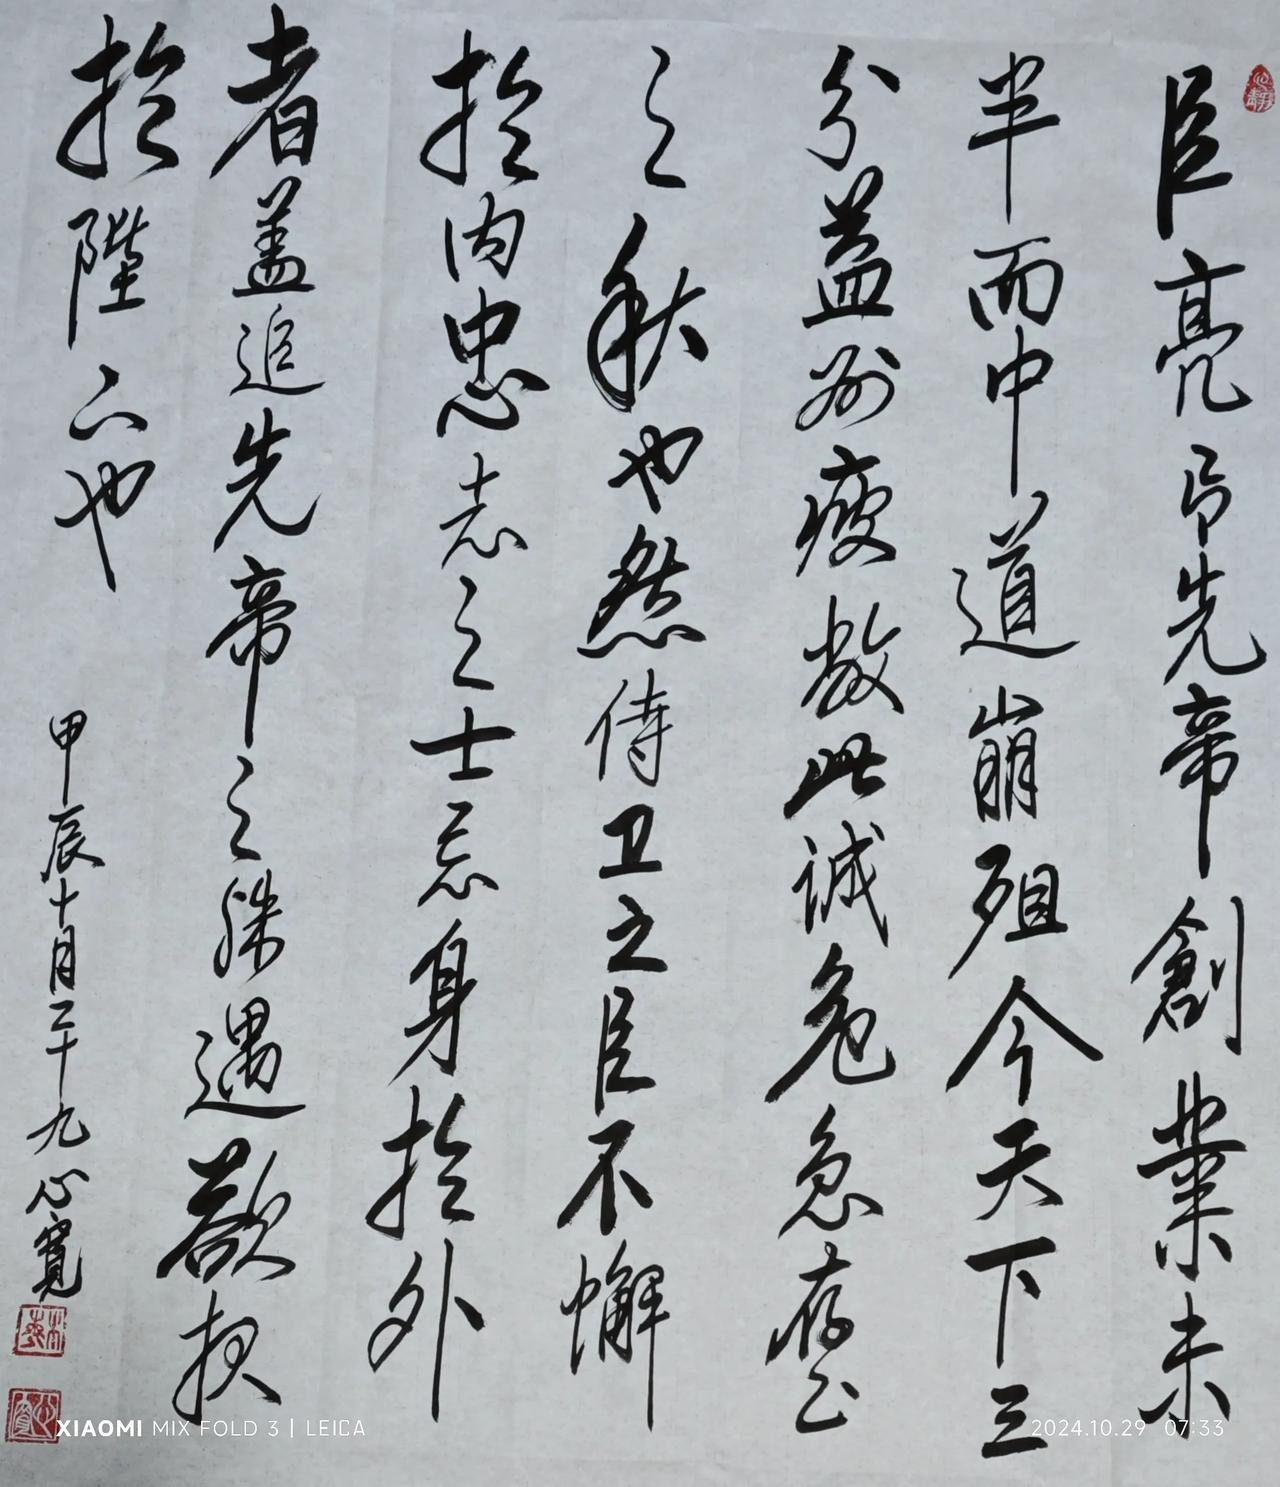 臣亮言先帝創業未
半而中道崩殂今天下三
分益州疲敝此诚危急存亡
之秋也然侍卫之臣不懈
於内忠志之士忘身於外
者盖追先帝之殊遇欲报
於陛下也
甲辰十月二十九心寬
XIAOMI MIX FOLD 3 | LEICA
2024.10.29 07:33